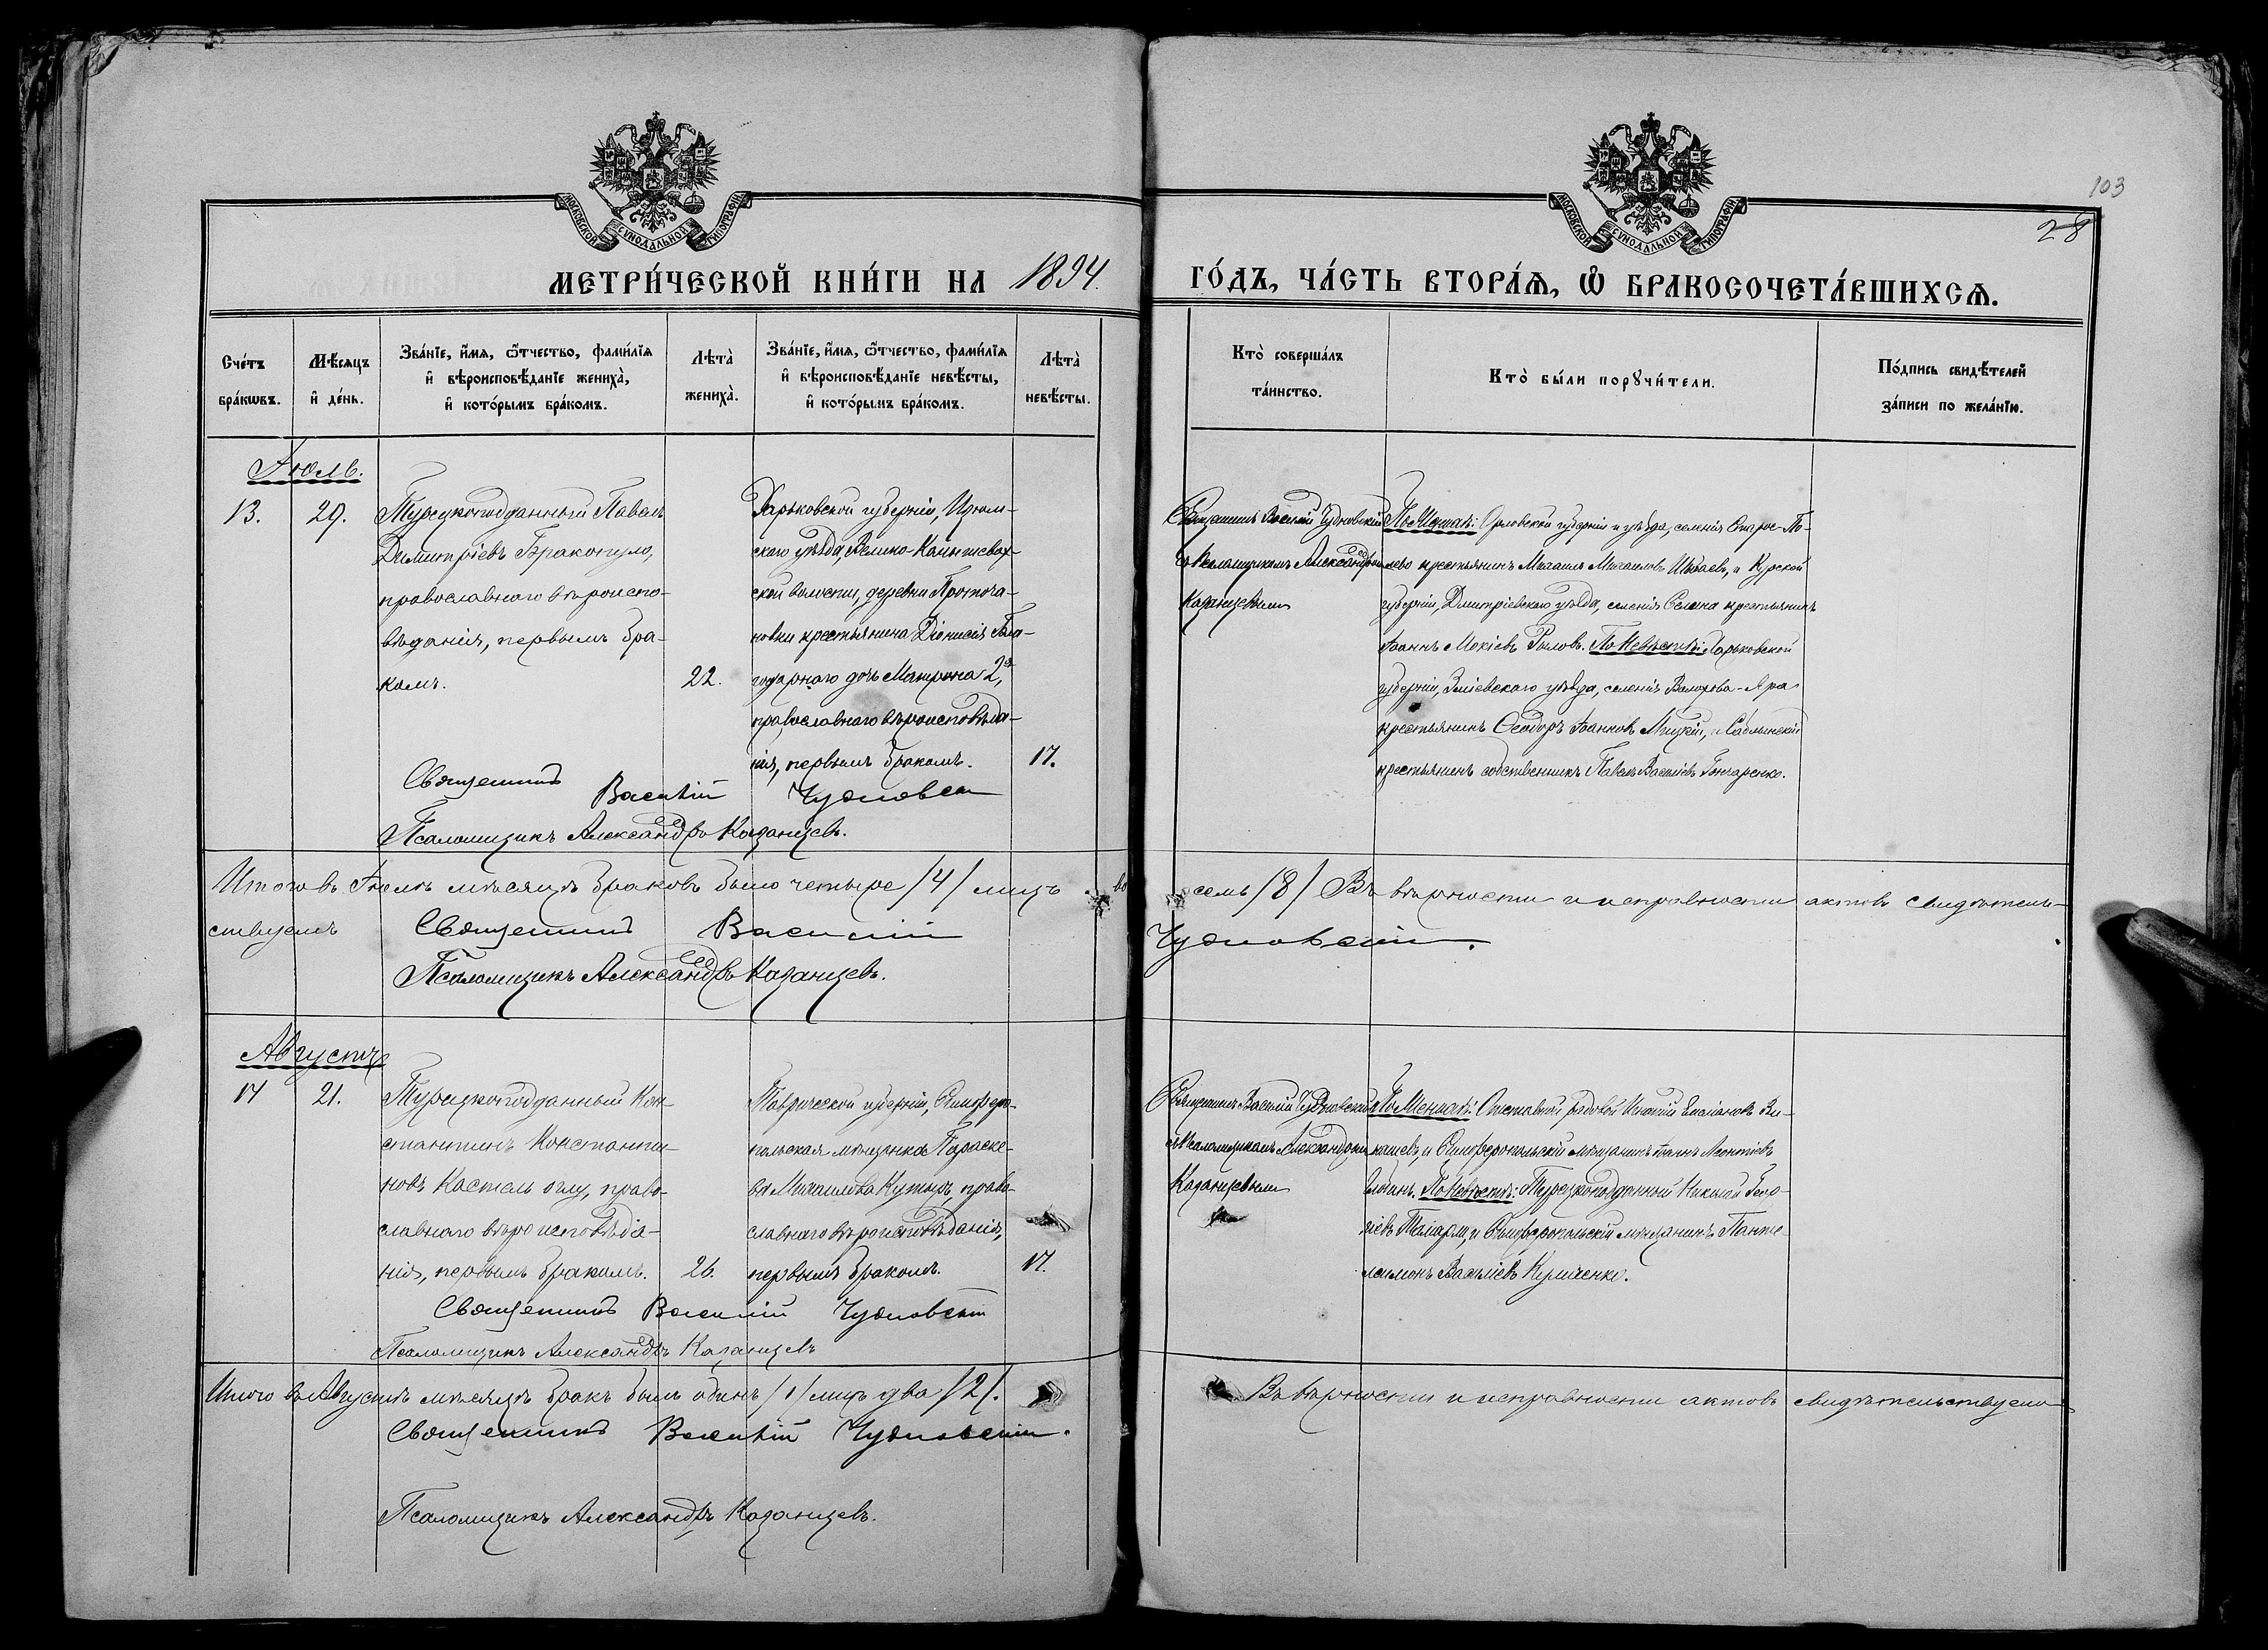 103
28
МОСКОВСКОЙ СѴНОДАЛЬНОЙ ТИПОГРАФІИ
МОСКОВСКОЙ СѴНОДАЛЬНОЙ ТИПОГРАФІИ
МЕТРИ́ЧЕСКОЙ КНИ́ГИ НА 1894.
ГО́ДЪ, ЧА́СТЬ ВТОРА́Ѧ, Ѽ БРАКОСОЧЕТА́ВШИХСѦ.
Сче́тъ
бра́кѡвъ.
Мѣ́сѧцъ
и҆ де́нь.
Зва́нїе, и҆́мѧ, ѻ҆́тчество, фами́лїѧ
и҆ вѣроисповѣ́данїе жениха̀,
и҆ кото́рымъ бра́комъ.
Лѣта̀
жениха̀.
Зва́нїе, и҆́мѧ, ѻ҆́тчество, фами́лїѧ
и҆ вѣроисповѣ́данїе невѣ́сты,
и҆ кото́рымъ бра́комъ.
Лѣта̀
невѣ́сты.
Кто̀ соверша́лъ
та́инство.
Кто̀ бы́ли порꙋчи́тели.
По́дпись свидѣ́телей
за́писи по жела́нїю.
Іюль.
13.
29.
Турецкоподданный Павелъ
Димитріевъ Бракопуло,
православнаго вѣроиспо-
вѣданія, первымъ бра-
комъ.
22.
Харьковской губерніи, Изюм-
скаго уѣзда, Велико-Камышевах-
ской волости, деревни Протопа-
новки крестьянина Діонисія Бла-
годарнаго дочь Матрона 2я,
православнаго вѣроисповѣда-
нія, первымъ бракомъ.
17.
Священникъ Василій Чудновскій
съ Псаломщикомъ Александромъ
Казанцевымъ
По Женихѣ: Орловской губерніи и уѣзда, селенія Старо-
крестьянинъ Михаилъ Михаиловъ и Курской
губерніи, Дмитріевскаго уѣзда, селенія крестьянинъ
Іоаннъ Мокіевъ По Невѣстѣ: Харьковской
губерніи, Зміевскаго уѣзда, селенія Яра
крестьянинъ Ѳеодоръ Іоанновъ
крестьянинъ собственникъ Павелъ Василіевъ Гончаренко.
Священникъ Василій Чудновскій
Псаломщикъ Александръ Казанцевъ.
Итого въ Іюлѣ мѣсяцѣ браковъ было четыре /4/ лицъ во
семь /8/ Въ вѣрности и исправности актовъ свидѣтель-
ствуемъ Священникъ Василій
Чудновскій.
Псаломщикъ Александръ Казанцевъ.
Августъ
14
21.
Турецкоподданный Кон-
стантинъ Константи-
новъ Кастель оглу, право-
славнаго вѣроисповѣда-
нія, первымъ бракомъ.
26.
Таврической губерніи, Симферо-
польская мѣщанка Параске-
ва Михаилова Кутыръ, право-
славнаго вѣроисповѣданія,
первымъ бракомъ.
17.
Священникъ Василій Чудновскій
съ Псаломщикомъ Александромъ
Казанцевымъ
По Женихѣ: Отставной рядовой
и Симферопольскій мѣщанинъ Іоаннъ Леонтіевъ
По Невѣстѣ: Турецкоподданный Николай Геор-
гіевъ и Симферопольскій мѣщанинъ Панте-
леимонъ Василіевъ Куличенко.
Священникъ Василій Чудновскій
Псаломщикъ Александръ Казанцевъ
Итого въ Августѣ мѣсяцѣ бракъ былъ одинъ /1/ лицъ два /2/.
Въ вѣрности и исправности актовъ свидѣтельствуемъ
Священникъ Василій Чудновскій.
Псаломщикъ Александръ Казанцевъ.